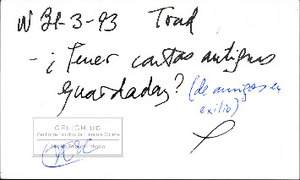 N 31-3-93 Trad
- ¿Tener cartas antiguas
guardadas? (de amigas en
exilio)
CELICH UC